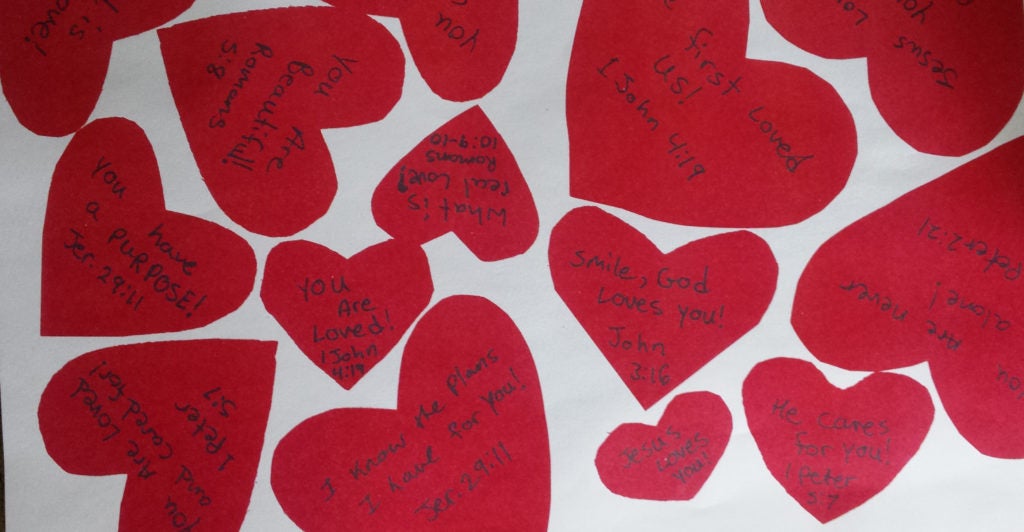 is
Love!
You
Are
Beautiful!
Romans
5:8
you
first Loved
us!
1 John 4:19
Jesus
Lo
you
You
have
a
PURPOSE!
Jer. 29:11
What is
real Love?
Romans
10:9-10
You
Are
Loved!
1 John
4:19
Smile, God
Loves you!
John
3:16
You
Are never
alone!
Peter 2:21
You
Are Loved
and Cared for!
1 Peter
5:7
I Know the Plans
I have for you!
Jer. 29:11
Jesus
Loves
You!
He cares
for you!
1 Peter
5:7